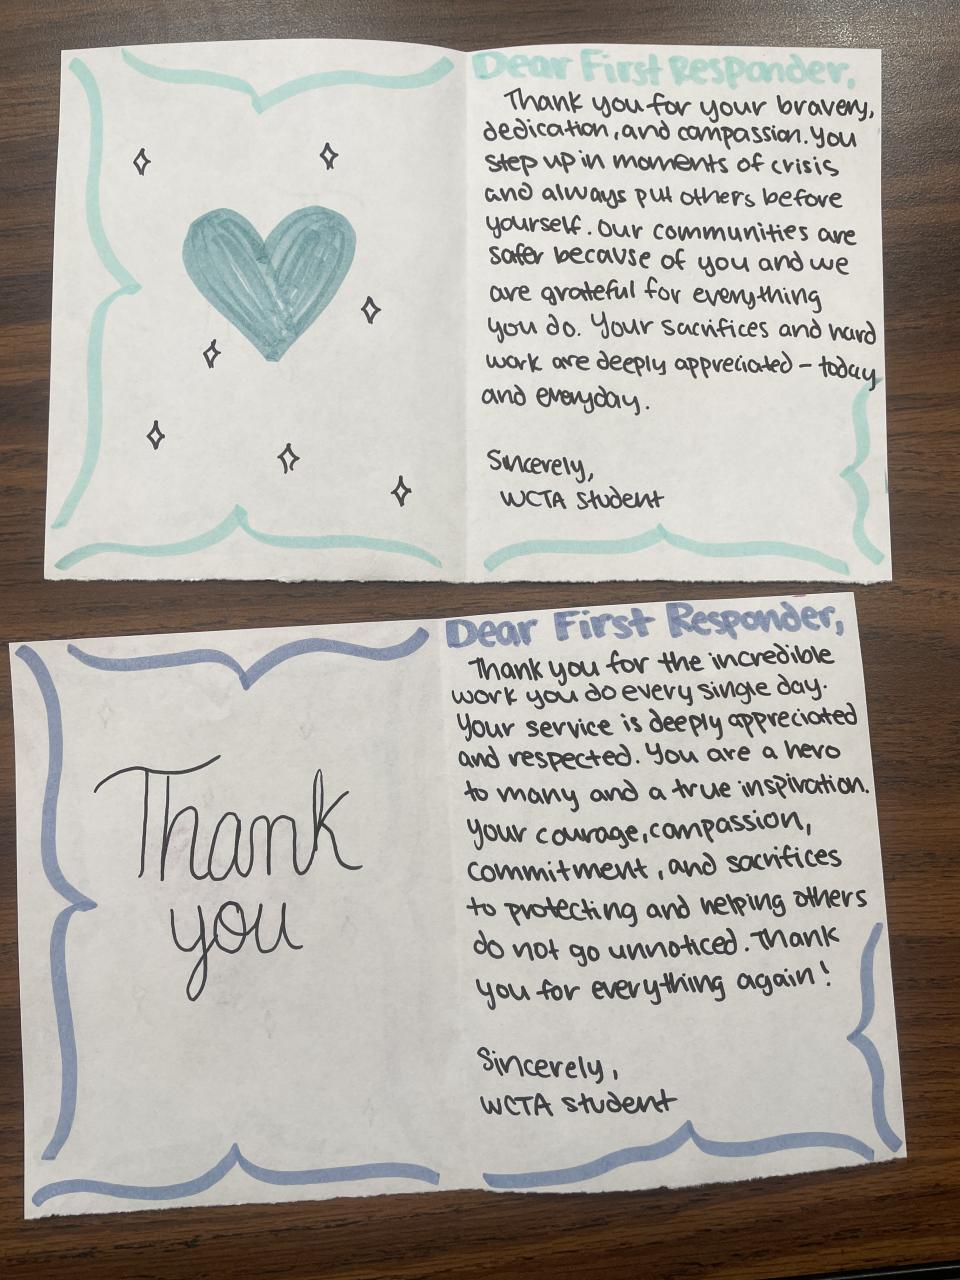 Dear First Responder,
Thank you for your bravery,
dedication, and compassion. You
step up in moments of crisis
and always put others before
yourself. Our communities are
safer because of you and we
are grateful for everything
you do. Your sacrifices and hard
work are deeply appreciated - today
and everyday.
Sincerely,
WCTA student
Thank
you
Dear First Responder,
Thank you for the incredible
work you do every single day.
Your service is deeply appreciated
and respected. You are a hero
to many and a true inspiration.
Your courage, compassion,
commitment, and sacrifices
to protecting and helping others
do not go unnoticed. Thank
you for everything again!
Sincerely,
WCTA student